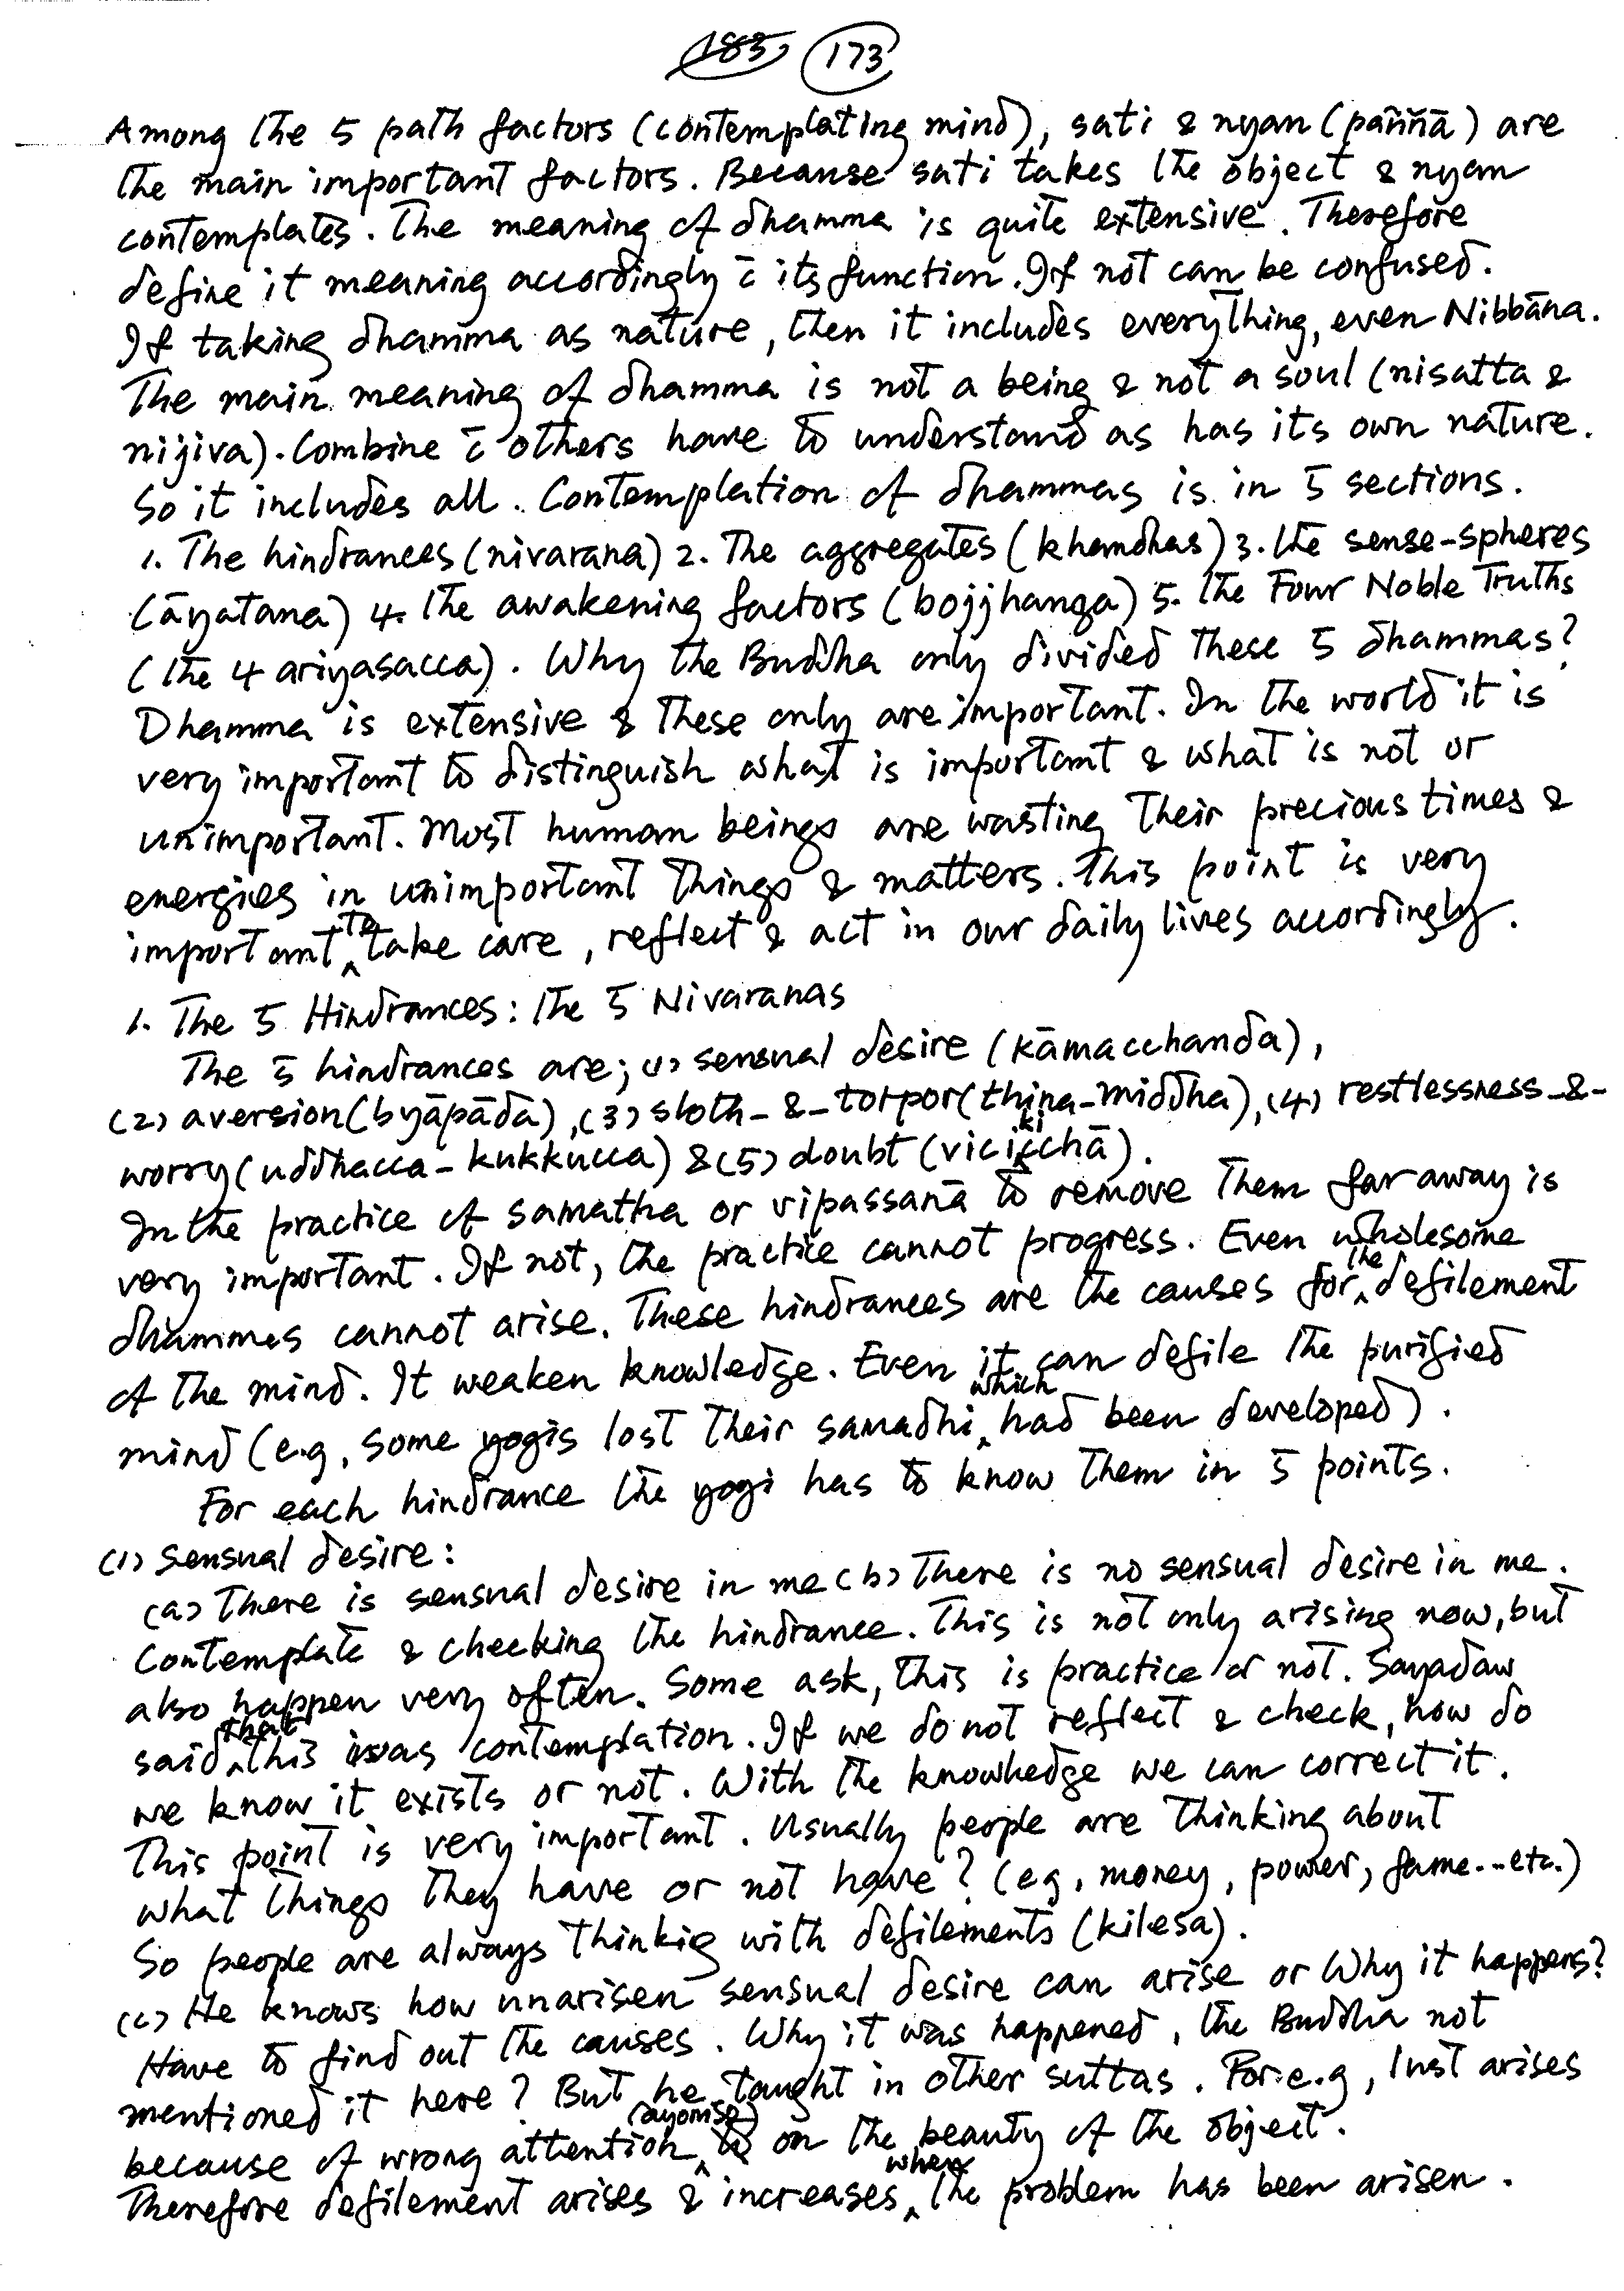 183 173
Among the 5 path factors (contemplating mind), sati & nyan (paññā) are
the main important factors. Because sati takes the object & nyan
contemplates. The meaning of dhamma is quite extensive. Therefore
define it meaning accordingly c̄ its function. If not can be confused.
If taking dhamma as nature, then it includes everything, even Nibbāna.
The main meaning of dhamma is not a being & not a soul (nisatta &
nijiva). Combine c̄ others have to understand as has its own nature.
So it includes all. Contemplation of dhammas is in 5 sections.
1. The hindrances (nivarana) 2. The aggregates (khandhas) 3. the sense-spheres
(āyatana) 4. the awakening factors (bojjhanga) 5. the Four Noble Truths
(the 4 ariyasacca). Why the Buddha only divided these 5 dhammas?
Dhamma is extensive & these only are important. In the world it is
very important to distinguish what is important & what is not or
unimportant. Most human beings are wasting their precious times &
energies in unimportant things & matters. This point is very
important to take care, reflect & act in our daily lives accordingly.
1. The 5 Hindrances: the 5 Nivaranas
The 5 hindrances are; (1) sensual desire (kāmacchanda),
(2) aversion (byāpāda), (3) sloth-&-torpor (thina-middha), (4) restlessness-&-
worry (uddhacca-kukkucca) & (5) doubt (vicikicchā).
In the practice of samatha or vipassanā to remove them far away is
very important. If not, the practice cannot progress. Even wholesome
dhammas cannot arise. These hindrances are the causes for the defilement
of the mind. It weaken knowledge. Even it can defile the purified
mind (e.g, some yogis lost their samadhi which had been developed).
For each hindrance the yogi has to know them in 5 points.
(1) sensual desire:
(a) There is sensual desire in me (b) There is no sensual desire in me.
Contemplate & checking the hindrance. This is not only arising now, but
also happen very often. Some ask, this is practice or not. Sayadaw
said that this was contemplation. If we do not reflect & check, how do
we know it exists or not. With the knowledge we can correct it.
This point is very important. Usually people are thinking about
what things they have or not have? (eg, money, power, fame...etc.)
So people are always thinkig with defilements (kilesa).
(c) He knows how unarisen sensual desire can arise or Why it happens?
Have to find out the causes. Why it was happened, the Buddha not
mentioned it here? But he taught in other suttas. For e.g, lust arises
because of wrong attention (ayoniso) on the beauty of the object.
Therefore defilement arises & increases when the problem has been arisen.